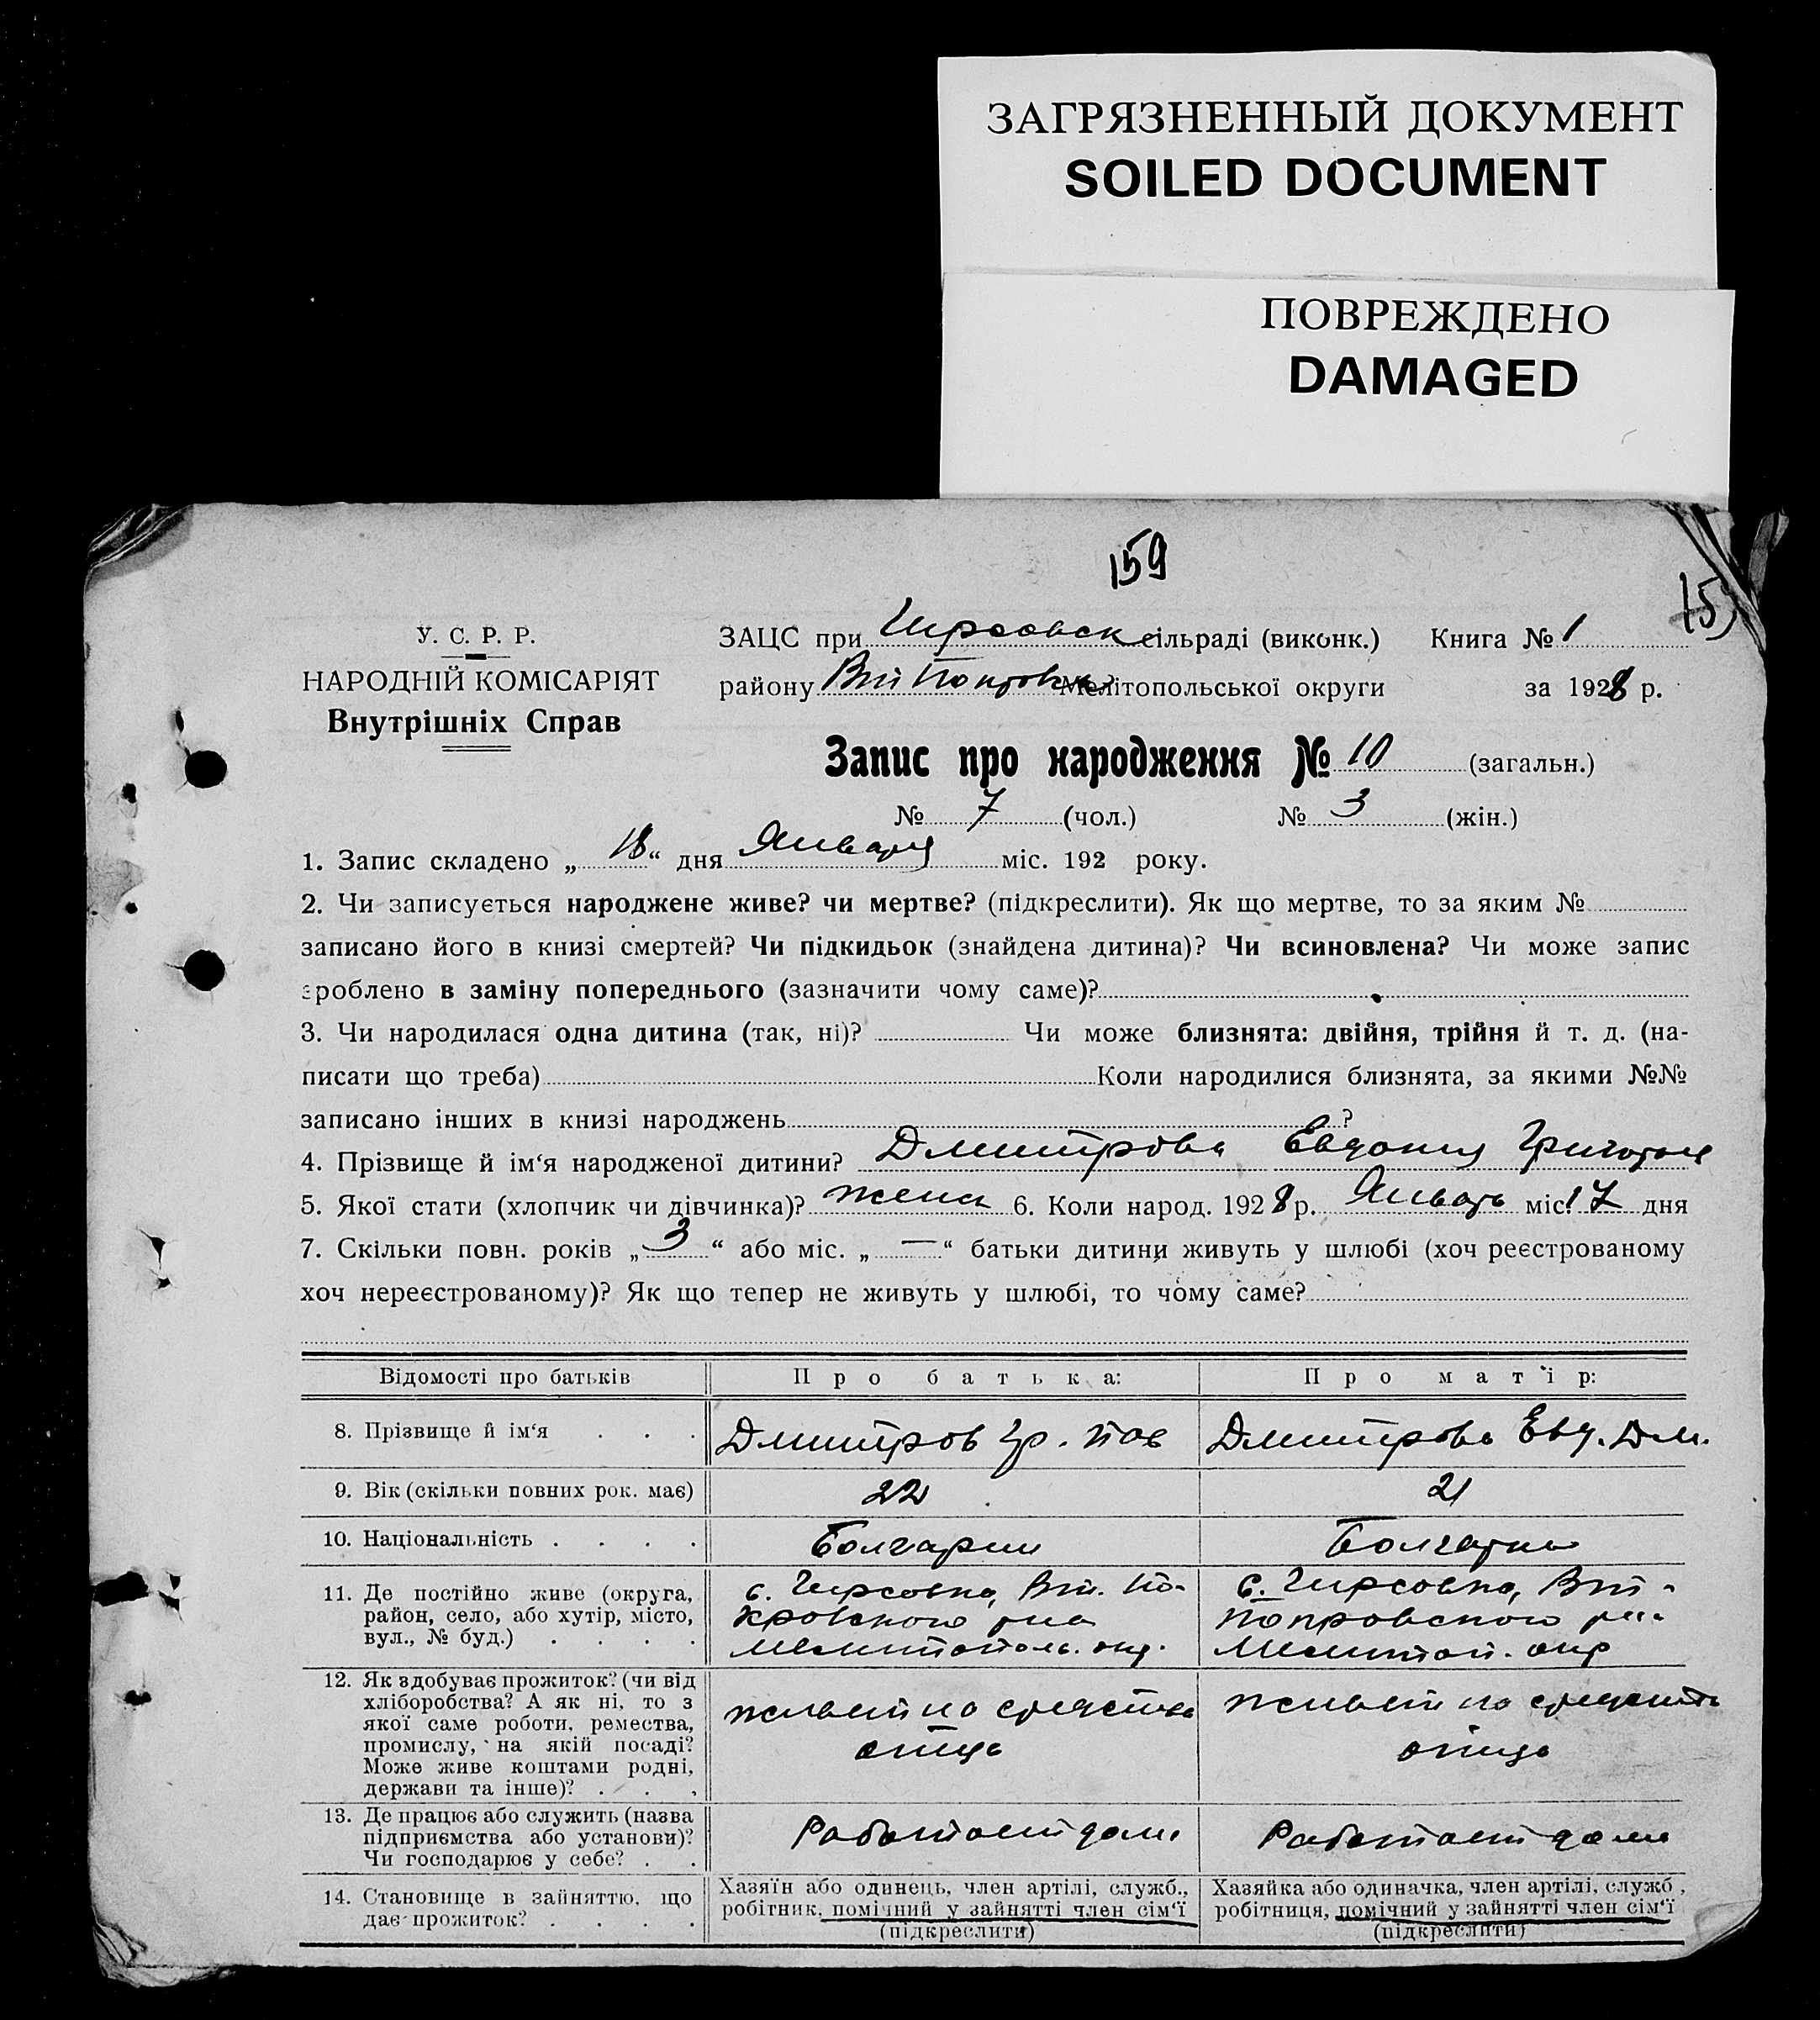 ЗАГРЯЗНЕННЫЙ ДОКУМЕНТ
SOILED DOCUMENT
ПОВРЕЖДЕНО
DAMAGED
159
У. С. Р. Р.
НАРОДНІЙ КОМІСАРІЯТ
Внутрішніх Справ
ЗАЦС при Гирсовск сільраді (виконк.) Книга № 1
району Вт. Покровск Мелітопольської округи за 1928 р.
Запис про народження № 10 (загальн.)
№ 7 (чол.) № 3 (жін.)
1. Запис складено „ 18 “ дня Января міс. 192 року.
2. Чи записується народжене живе? чи мертве? (підкреслити). Як що мертве, то за яким №
записано його в книзі смертей? Чи підкидьок (знайдена дитина)? Чи всиновлена? Чи може запис
зроблено в заміну попереднього (зазначити чому саме)?
3. Чи народилася одна дитина (так, ні)? Чи може близнята: двійня, трійня й т. д. (на-
писати що треба) Коли народилися близнята, за якими №№
записано інших в книзі народжень ?
4. Прізвище й ім‘я народженої дитини? Дмитрова Евдокия
5. Якої стати (хлопчик чи дівчинка)? женск 6. Коли народ. 1928 р. Январь міс. 17 дня
7. Скільки повн. років „ 3 “ або міс. „ — “ батьки дитини живуть у шлюбі (хоч реєстрованому
хоч нереєстрованому)? Як що тепер не живуть у шлюбі, то чому саме?
Відомості про батьків
Про батька:
Про матір:
8. Прізвище й ім‘я . . .
Дмитров Гр. Пав
Дмитрова Евд. Дм.
9. Вік (скільки повних рок. має)
22
21
10. Національність . . . .
Болгарин
Болгарка
11. Де постійно живе (округа,
район, село, або хутір, місто,
вул., № буд.) . . . .
с. Гирсовка, Вт. По-
кровского р-на
Мелитополь. окр.
с. Гирсовка, Вт-
Покровского р-на
Мелитоп. окр
12. Як здобуває прожиток? (чи від
хліборобства? А як ні, то з
якої саме роботи, ремества,
промислу, на якій посаді?
Може живе коштами родні,
держави та інше)? . . .
живет на средства
отца
живет на средства
отца
13. Де працює або служить (назва
підприємства або установи)?
Чи господарює у себе? . .
Работает дома
Работает дома
14. Становище в зайняттю, що
дає прожиток? . . . .
Хазяїн або одинець, член артілі, служб.,
робітник, помічний у зайнятті член сім‘ї
(підкреслити)
Хазяйка або одиначка, член артілі, служб.,
робітниця, помічний у зайнятті член сім‘ї
(підкреслити)